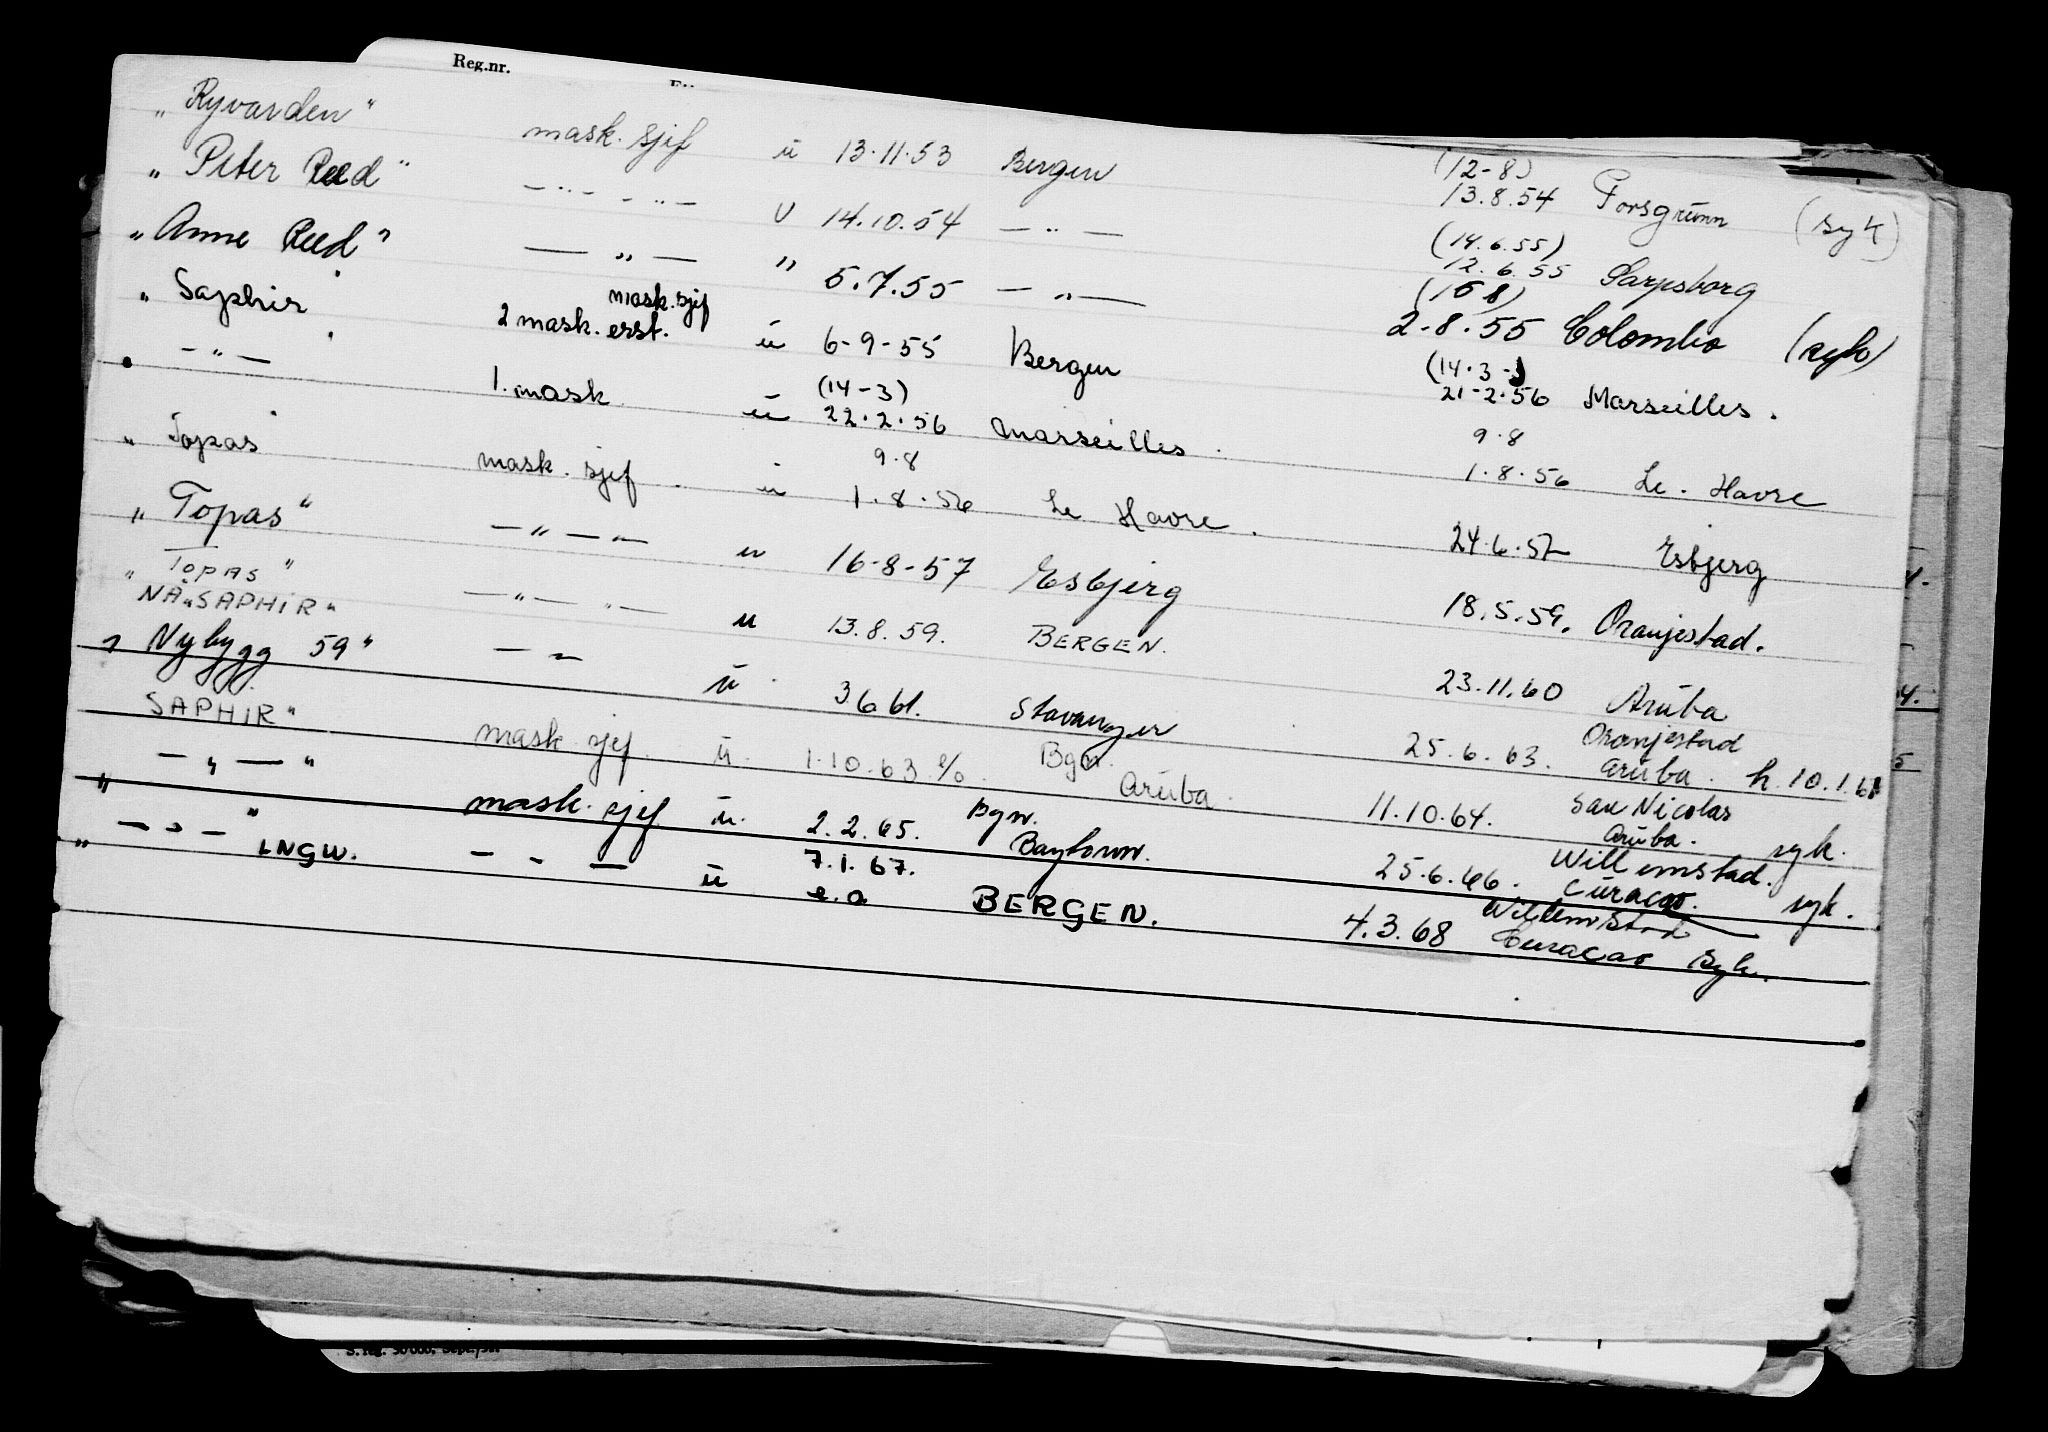 Reg.nr.
„ Ryvarden " mask. sjef u 13.11.53 Bergen (12-8) 13.8.54 Porsgrunn (syk)
„ Peter Reed " — „ — — „ — u 14.10.54 — „ — (14.6.55) 12.6.55 Sarpsborg
„ Anne Reed " — „ — " 5.7.55 — „ — (15 8) 2-8.55 Colombo (syk)
„ Saphir mask. sjef 2 mask. erst. u 6-9-55 Bergen (14.3-) 21-2.56 Marseilles.
— „ — 1. mask u (14-3) 22.2.56 Marseilles. 9.8 1.8.56 Le. Havre
„ Topas mask. sjef. u 9.8 1.8.56 Le Havre. 24.6.57 Esbjerg
„ Topas " — „ — „ — u 16-8-57 Esbjerg 18.5.59. Oranjestad.
„ TOPAS "
NÅ „SAPHIR" — „ — „ — u 13.8.59. BERGEN. 23.11.60 Aruba
" Nybygg 59 " — „ — u 3 6 61. Stavanger 25.6.63. Oranjestad Aruba. h. 10.1.61
SAPHIR " mask. sjef. u. 1.10.63 Bgn. Aruba. 11.10.64. San Nicolas Aruba. syk.
„ — „ — " mask. sjef u. 2.2.65. Bgn. Baytown. 25.6.66. Willemstad. Curacao. syk.
„ — „ — " LNGW. — „ — u 7.1.67. e.a BERGEN. 4.3.68 Willemstad Curacao Syk.